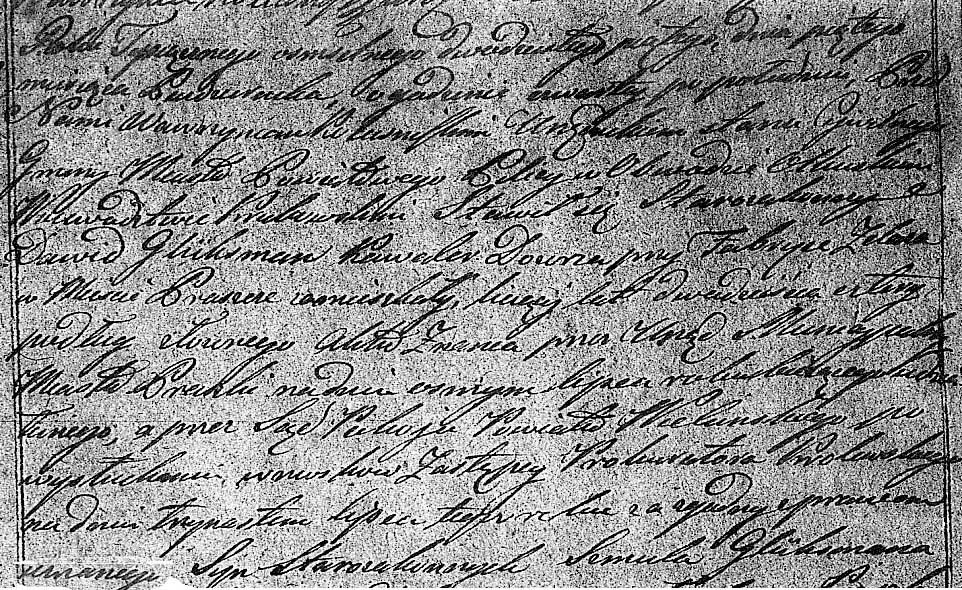 Roku Tysiącznego osmsetnego dwudziestego piątego, dnia piątego
miesiąca Października, o godzinie czwartey po południu, Przed
Nami Wawrzyncem Urzędnikiem Stanu Cywilnego
Gminy Miasta Powiatowego w Obwodzie
Woiewodztwie Kaliskim Stawił się Starozakonny
Dawid Glücksman Kawaler Dozorca przy Fabryce Żelaza
w Mieście Praszce zamieszkały, liczący lat dwadzieścia cztery
podług złożonego Aktu Znania przez Urząd Municypalny
Miasta Praszki na dniu osmym lipca roku bieżącego
łanego, a przez Sąd Pokoju Powiatu Wieluńskiego po
wysłuchaniu wniosków Zastępcy Prokuratora Królewskiego
na dniu trzynastem lipca tegoż roku za zgodny z prawem
uznanego, Syn Starozakonnych Semula Glücksmana